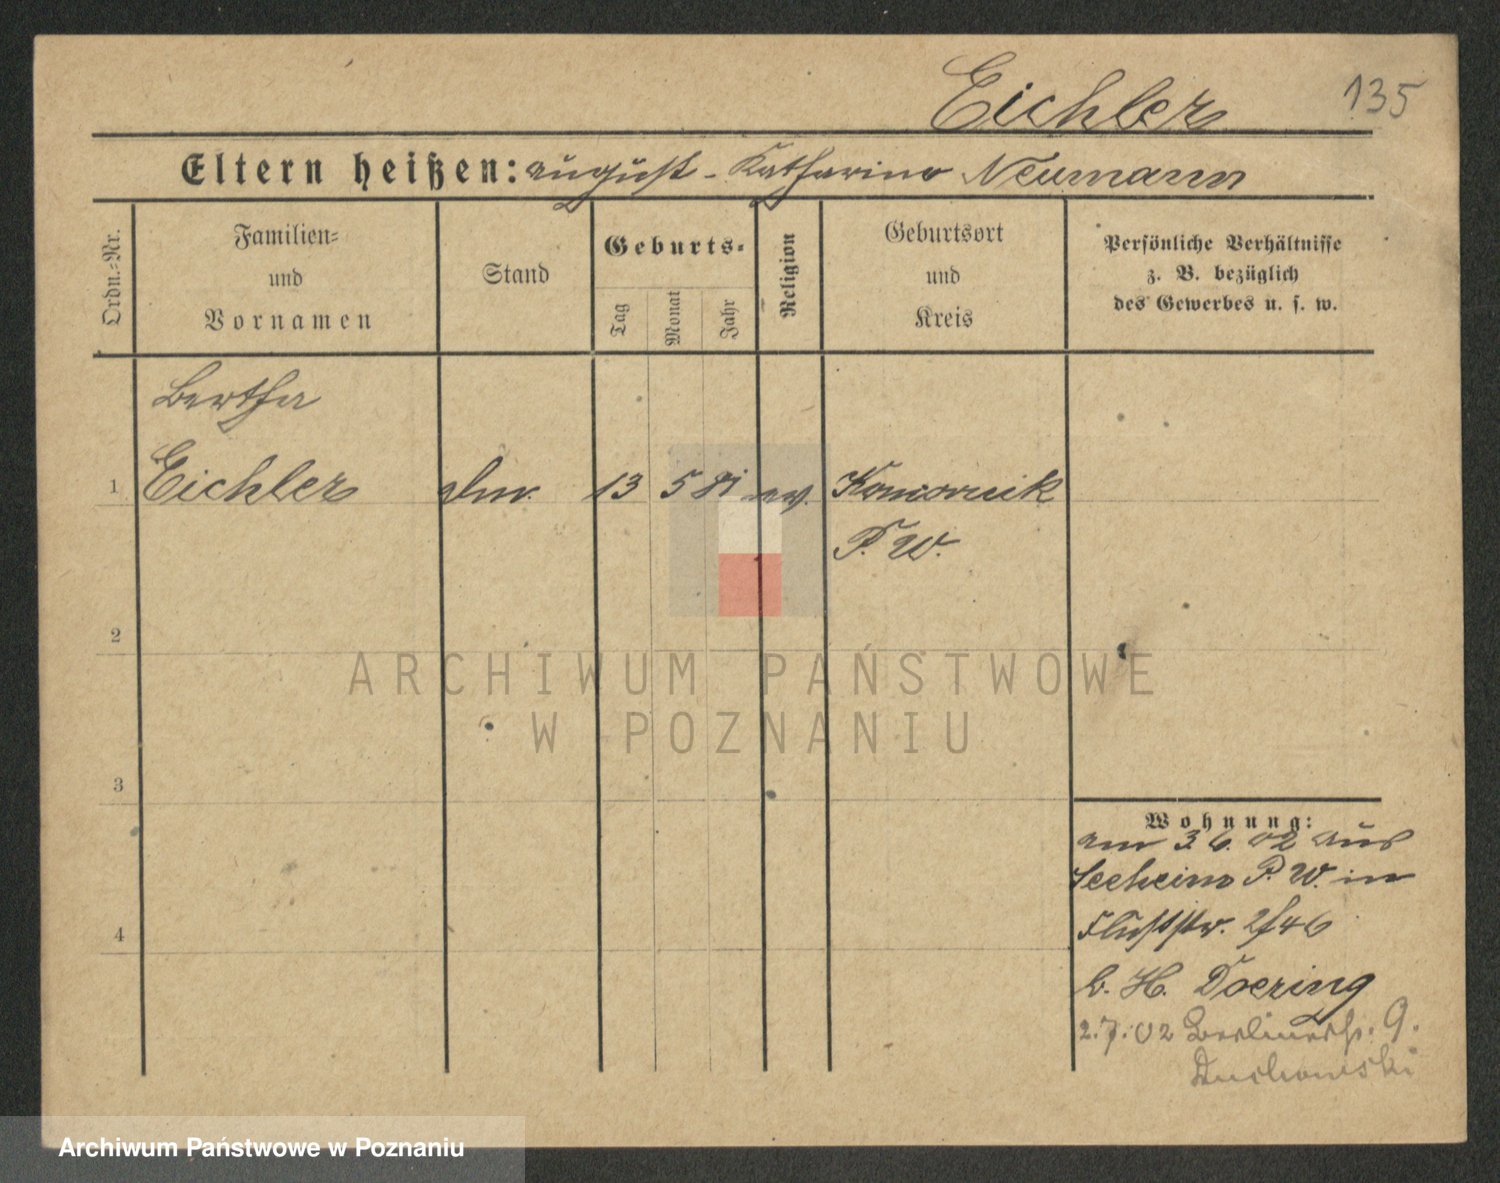 Eichler
135
Eltern heißen: August - Katharina Neumann
Ordn.-Nr.
Familien-
und
Vornamen
Stand
Geburts-
Tag
Monat
Jahr
Religion
Geburtsort
und
Kreis
Persönliche Verhältnisse
z. B. bezüglich
des Gewerbes u. s. w.
Bertha
1 Eichler 13 5 81 ev. Komornik
P. W.
2
3
4
ARCHIWUM PAŃSTWOWE
W POZNANIU
Wohnung:
am 3. 6. 02 aus
Seeheim P. W. in
Flußstr. 
b. H. Doering
2.7.02 Berlinerstr. 9.
Archiwum Państwowe w Poznaniu